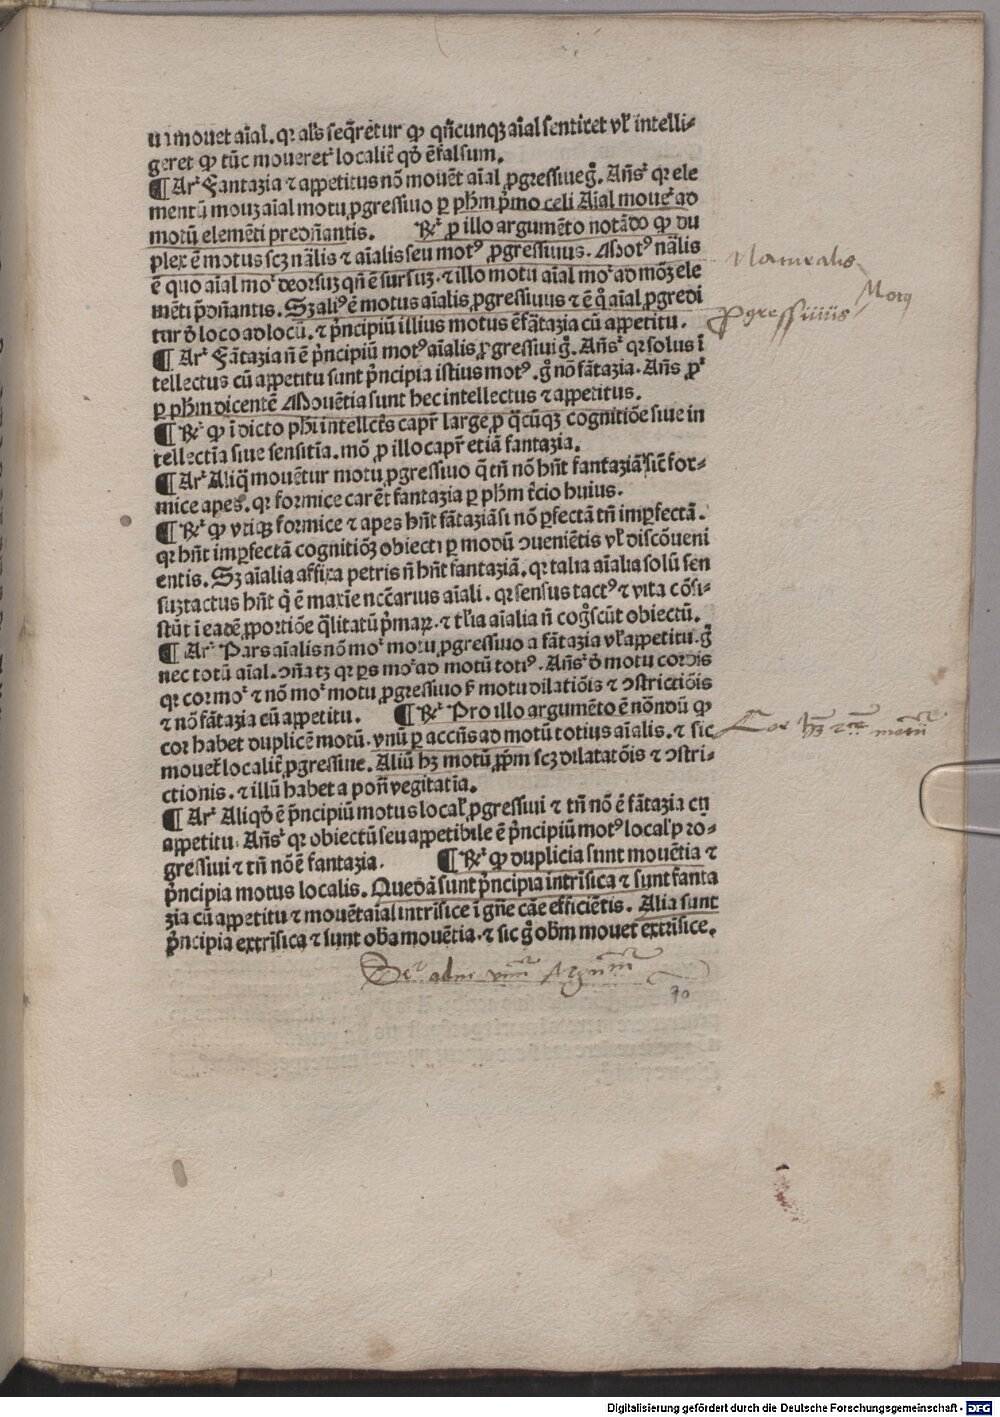 ui mouet aīal. qꝛ als̄ seq̄ret̄ur ꝙ qn̄cunqꝫ aīal sentiret vl̓ intelli-
geret ꝙ tūc moueret᷑ localit̄ qd̓ ē falsum.
¶ Ar᷑ Fantazia ⁊ appetitus nō mouēt aīal ꝓgressiue gͦ. Añs᷑ qꝛ ele
mentū mouꝫ aīal motu ꝓgressiuo ꝑ ph̄m pͥmo celi Aīal mouet᷑ ad
motū elemēti predn̄antis. ¶ R᷑ ꝓ illo argumēto notādo ꝙ du
plex ē motus scꝫ nālis ⁊ aīalis seu motꝰ ꝓgressiuus. Motꝰ nālis
ē quo aīal mo᷑ deorsuꝫ qn̄ ē sursuꝫ. ⁊ illo motu aīal mo᷑ ad mōꝫ ele
mēti p̄dn̄antis. Sꝫ aliꝰ ē motus aīalis ꝓgressiuus ⁊ ē qͦ aīal ꝓgredi
tur d̓ loco ad locū. ⁊ pͥncipiū illius motus ē fātazia cū appetitu.
¶ Ar᷑ Fātazia n̄ ē pͥncipiū motꝰ aīalis ꝓgressiui gͦ. Añs᷑ qꝛ solus ī
tellectus cū appetitu sunt pͥncipia istius motꝰ. gͦ nō fātazia. Añs ꝓ᷑
ꝑ ph̄m dicentē Mouētia sunt hec intellectus ⁊ appetitus.
¶ R᷑ ꝙ ī dicto ph̄i intellect̄s capr̄ large ꝓ qͣcūqꝫ cognitiōe siue in
tellectīa siue sensitīa. mō ꝓ illo capr̄ etiā fantazia.
¶ Ar᷑ Aliqͣ mouētur motu ꝓgressiuo qͣ tn̄ nō hn̄t fantaziā sic̄ for-
mice apes. qꝛ formice carēt fantazia ꝑ ph̄m t̄cio huius.
¶ R᷑ ꝙ vtiqꝫ formice ⁊ apes hn̄t fātaziā si nō ꝑfectā tn̄ imꝑfectā.
qꝛ hn̄t imꝑfectā cognitiōꝫ obiecti ꝑ modū ꝯueniētis vl̓ discōueni
entis. Sꝫ aīalia affixa petris n̄ hn̄t fantaziā. qꝛ talia aīalia solū sen
suꝫ tactus hn̄t qͥ ē maxīe nc̄c̄arius aīali. qꝛ sensus tactꝰ ⁊ vita cōsi-
stūt ī eadē ꝓportiōe q̄litatū pͥmaꝝ. ⁊ tl̓ia aīalia n̄ cogͦscūt obiectū.
¶ Ar᷑ Pars aīalis nō mo᷑ motu ꝓgressiuo a fātazia vl̓ appetitu. gͦ
nec totū aīal. ꝯn̄a tꝫ qꝛ ꝑs mo᷑ ad motū totiꝰ. Añs᷑ d̓ motu cordis
qꝛ cor mo᷑ ⁊ nō mo᷑ motu ꝓgressiuo ſꝫ motu dilatiōis ⁊ ꝯstrictiōis
⁊ nō fātazia cū appetitu. ¶ R᷑ Pro illo argumēto ē nōndū ꝙ
cor habet duplicē motū. vnū ꝑ accn̄s ad motū totius aīalis. ⁊ sic
mouet᷑ localit̄ ꝓgressiue. Aliū hꝫ motū ꝓpͥm scꝫ dilatatōis ⁊ ꝯstri-
ctionis. ⁊ illū habet a pon̄ vegitatīa.
¶ Ar᷑ Aliqd̓ ē pͥncipiū motus local̓ ꝓgressiui ⁊ tn̄ nō ē fātazia cū
appetitu. Añs᷑ qꝛ obiectū seu appetibile ē pͥncipiū motꝰ local̓ p ro-
gressiui ⁊ tn̄ nō ē fantazia. ¶ R᷑ ꝙ duplicia sunt mouētia ⁊
pͥncipia motus localis. Quedā sunt pͥncipia intrīsica ⁊ sunt fanta
zia cū appetitu ⁊ mouēt aīal intrīsice ī gn̄e cāe efficiētis. Alia sunt
pͥncipia extrīsica ⁊ sunt ob̄a mouētia. ⁊ sic gͦ ob̄m mouet extrīsice.
Naturalis
Motꝰ
Progressiuus
Cor hꝫ motum
30
Digitalisierung gefördert durch die Deutsche Forschungsgemeinschaft - DFG